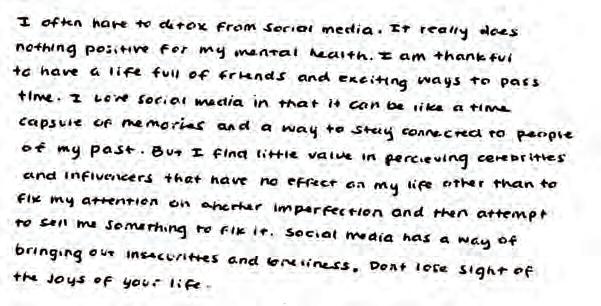 I often have to detox from social media. It really does
nothing positive for my mental health. I am thankful
to have a life full of friends and exciting ways to pass
time. I love social media in that it can be like a time
capsule of memories and a way to stay connected to people
of my past. But I find little value in percieving celebrities
and influencers that have no effect on my life other than to
fix my attention on another imperfection and then attempt
to sell me something to fix it. Social media has a way of
bringing out insecurities and loneliness. Dont lose sight of
the joys of your life.